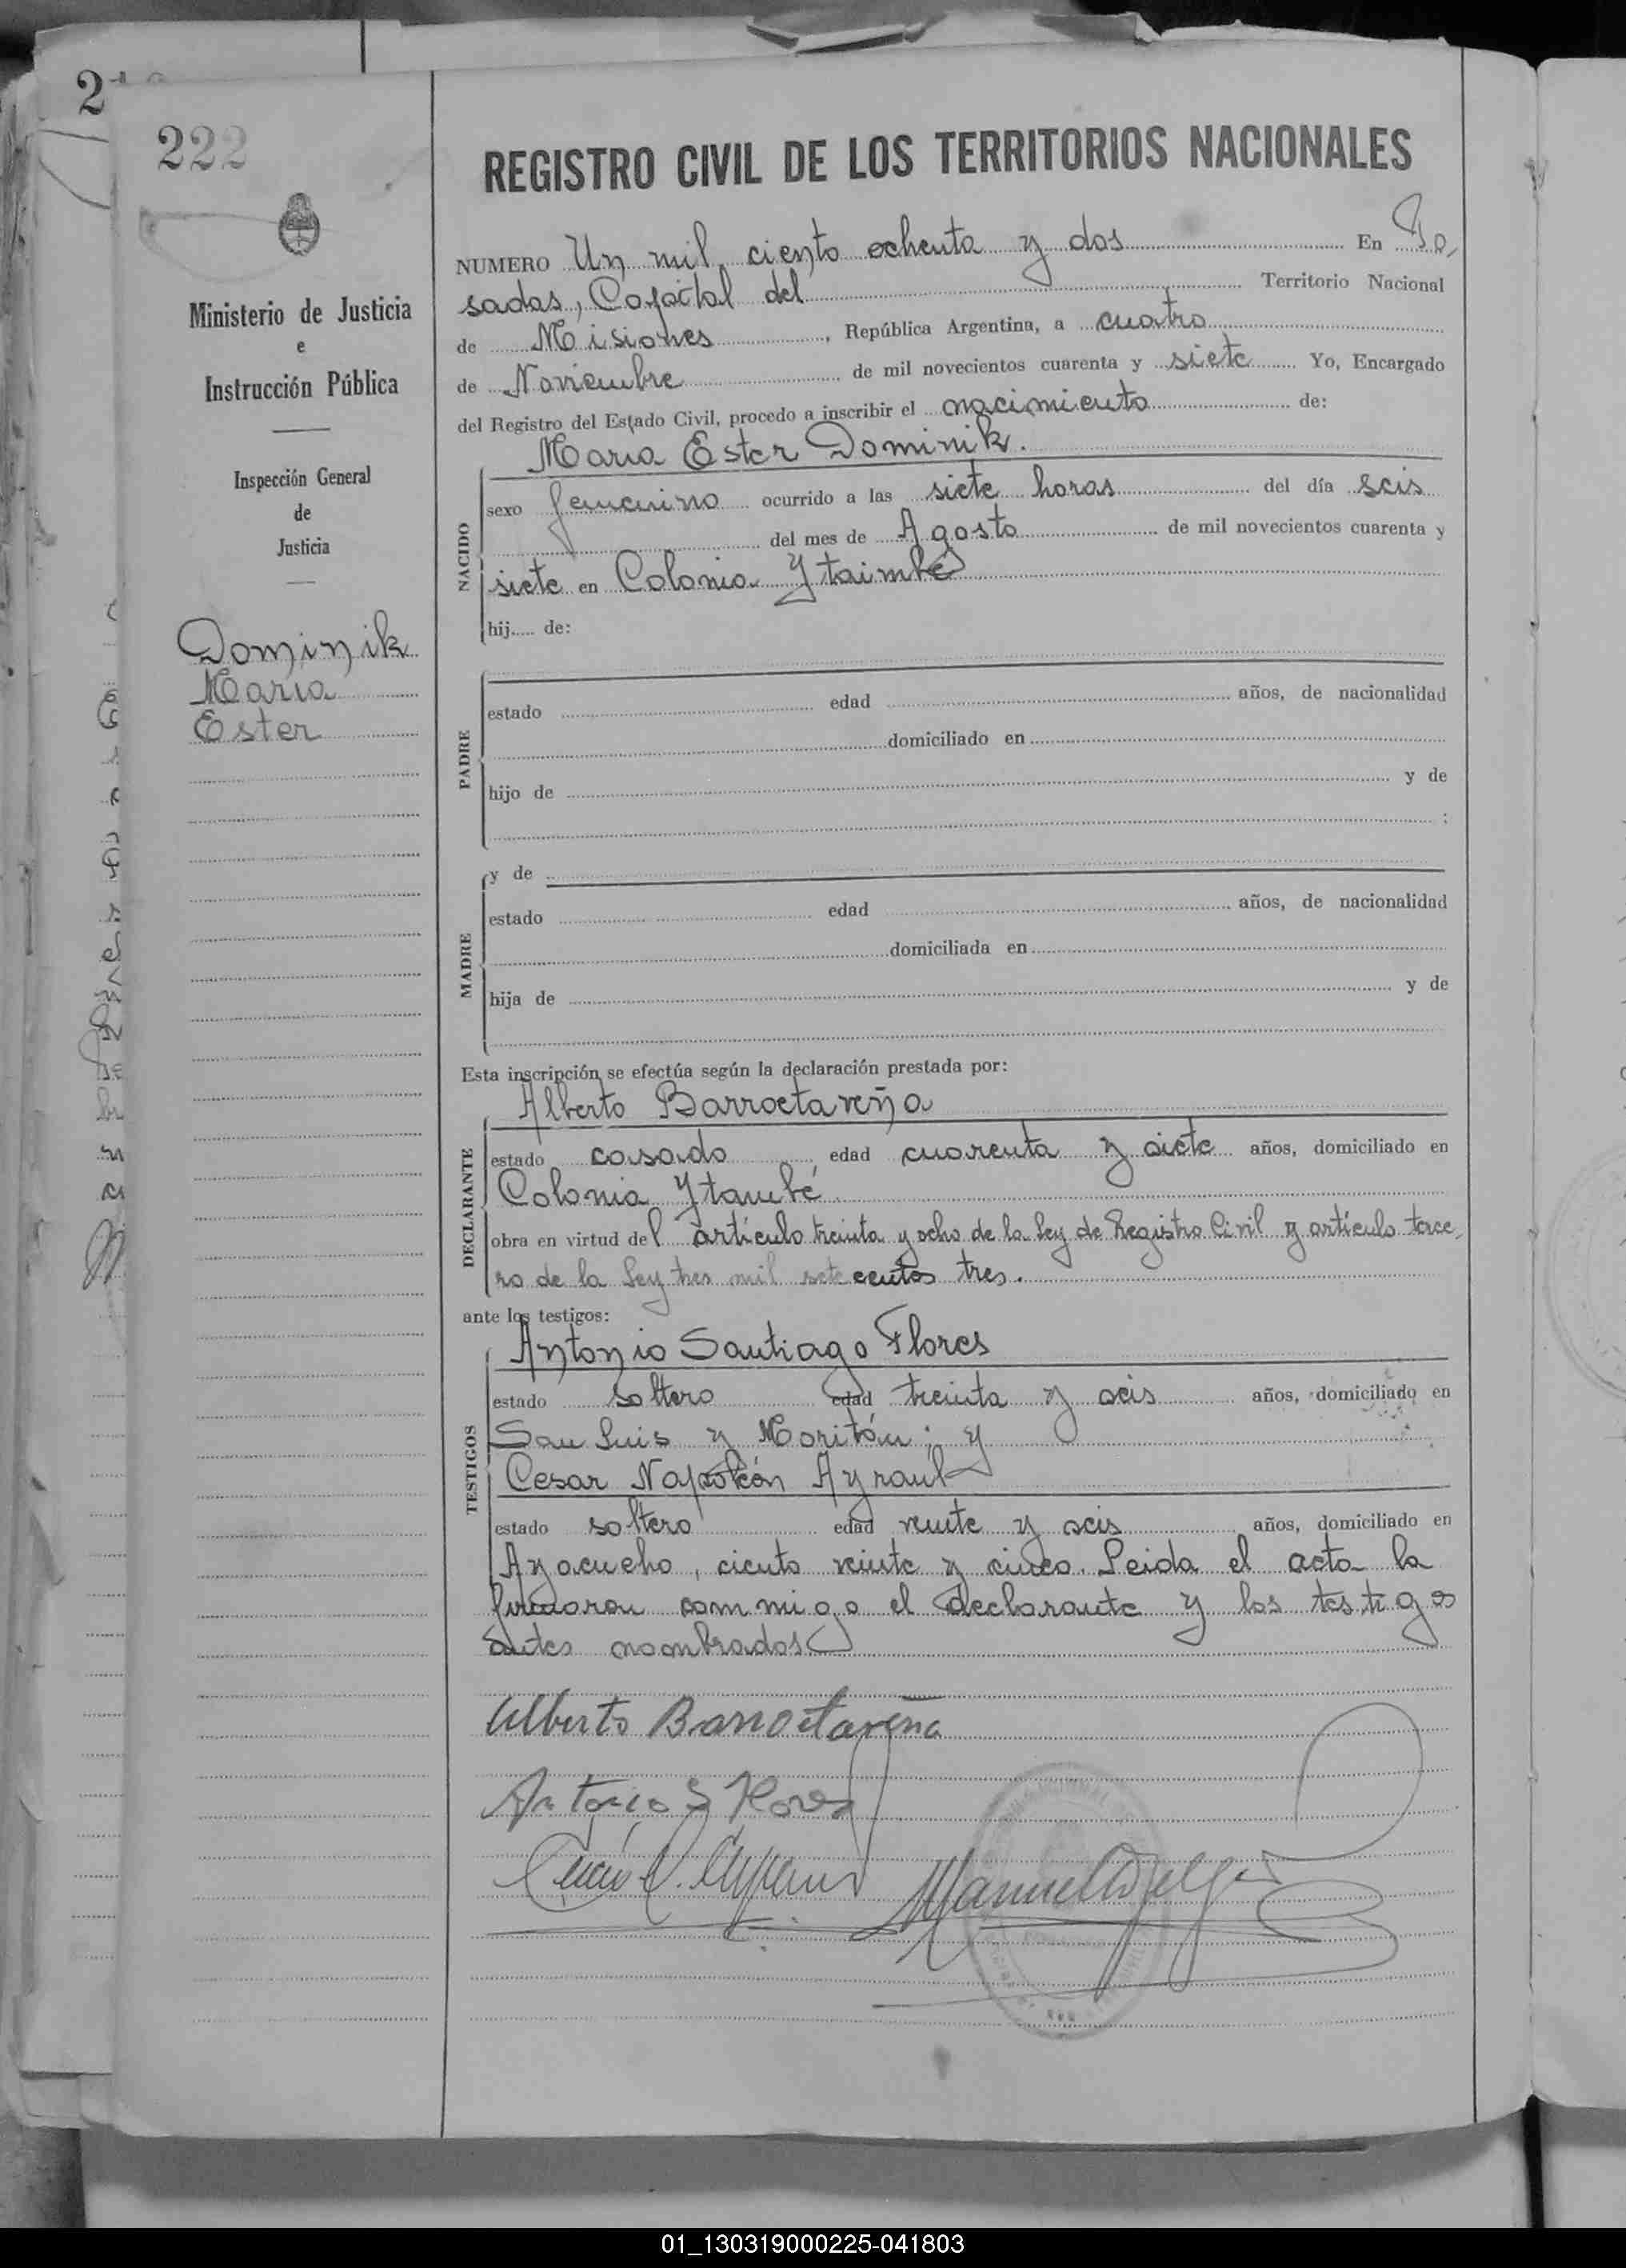 21
222
REGISTRO CIVIL DE LOS TERRITORIOS NACIONALES
NUMERO Un mil ciento ochenta y dos En Po,
sadas, Capital del Territorio Nacional
de Misiones, República Argentina, a cuatro
de Noviembre de mil novecientos cuarenta y siete Yo, Encargado
del Registro del Estado Civil, procedo a inscribir el nacimiento de:
Ministerio de Justicia
e
Instrucción Pública
Inspección General
de
Justicia
Dominik
Maria
Ester
NACIDO
Maria Ester Dominik.
sexo femenino ocurrido a las siete horas del día seis
del mes de Agosto de mil novecientos cuarenta y
siete en Colonia Ytaimbé
hij..... de:
PADRE
estado edad años, de nacionalidad
domiciliado en
hijo de y de
;
MADRE
y de
estado edad años, de nacionalidad
domiciliada en
hija de y de
Esta inscripción se efectúa según la declaración prestada por:
DECLARANTE
Alberto Barroetaveña
estado casado, edad cuarenta y siete años, domiciliado en
Colonia Ytambé
obra en virtud del artículo treinta y ocho de la Ley de Registro Civil y artículo terce,
ro de la Ley tres mil setecentos tres.
ante los testigos:
TESTIGOS
Antonio Santiago Flores
estado soltero edad treinta y seis años, domiciliado en
San Luis y Moritán; y
Cesar Napoleón Ayrault
estado soltero edad veinte y seis años, domiciliado en
Ayacucho, ciento veinte y cinco. Leida el acta la
firmaron conmigo el declarante y los testigos
antes nombrados
Alberto Barroetaveña
Antonio S Flores
01_130319000225-041803